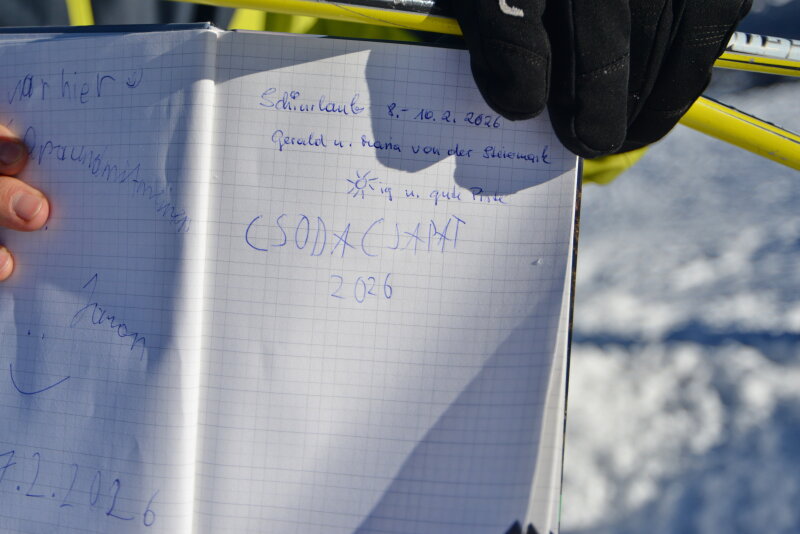 war hier
Jaron
7.2.2026
Schiurlaub 8.-10.2.2026
Gerald u. Maria von der Steiermark
ig u. gute Piste
CSODACSAPAT
2026